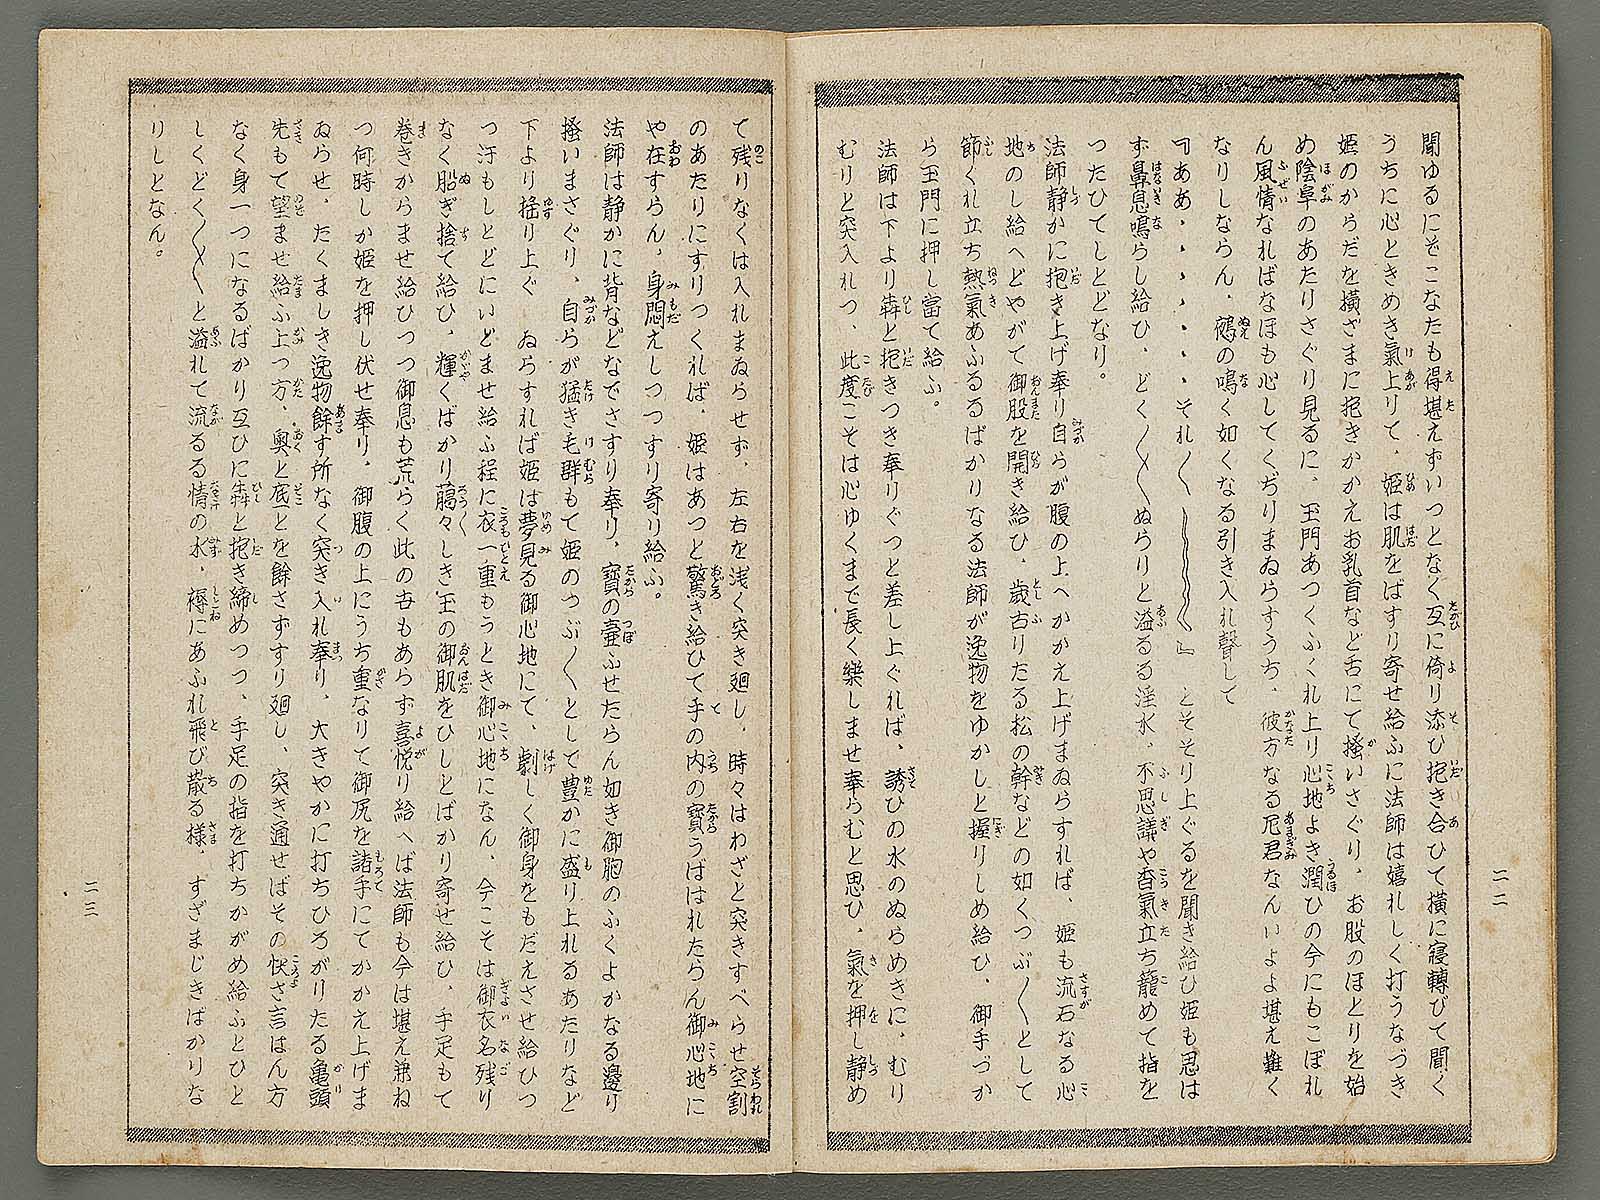 聞ゆるにそこなたも得堪えずいつとなく互に倚り添ひ抱き合ひて横に寝轉びて聞く
うちに心ときめき氣上りて、姫は肌をばすり寄せ給ふに法師は嬉れしく打うなづき
姫のからだを横ざまに抱きかかえお乳首など舌にて掻いさぐり、お股のほとりを始
め陰阜のあたりさぐり見るに、玉門あつくふくれ上り心地よき潤ひの今にもこぼれ
ん風情なればなほも心してくぢりまゐらすうち、彼方なる尼君なんいよよ堪え難く
なりしならん、鵺の鳴く如くなる引き入れ聲して
『ああ、、、、、、それ〱〱 』とそそり上ぐるを聞き給ひ姫も思は
ず鼻息鳴らし給ひ、どく〱〱〱ぬらりと溢るる淫水、不思議や香氣立ち籠めて指を
つたひてしとどなり。
法師静かに抱き上げ奉り自らが腹の上へかかえ上げまゐらすれば、姫も流石なる心
地のし給へどやがて御股を開き給ひ、歳古りたる松の幹などの如くつぶ〱として
節くれ立ち熱氣あふるるばかりなる法師が逸物をゆかしと握りしめ給ひ、御手づか
ら玉門に押し當て給ふ。
法師は下より犇と抱きつき奉りぐつと差し上ぐれば、誘ひの水のぬらめきに、むり
むりと突入れつ、此度こそは心ゆくまで長く樂しませ奉らむと思ひ、氣を押し静め
二二
て残りなくは入れまゐらせず、左右を浅く突き廻し、時々はわざと突きすべらせ空割
のあたりにすりつくれば、姫はあつと驚き給ひて手の内の寶うばはれたらん御心地に
や在すらん、身悶えしつつすり寄り給ふ。
法師は静かに背などなでさすり奉り、寶の壷ふせたらん如き御胞のふくよかなる邊り
掻いまさぐり、自らが猛き毛群もて姫のつぶ〱として豊かに盛り上れるあたりなど
下より揺り上げ ゐらすれば姫は夢見る御心地にて、劇しく御身をもだえさせ給ひつ
つ汗もしとどにいどませ給ふ程に衣一重もうとき御心地になん、今こそは御衣名残り
なく脱ぎ捨て給ひ、輝くばかり﨟々しき玉の御肌をひしとばかり寄せ給ひ、手足もて
巻きからませ給ひつつ御息も荒らく此の世もあらず喜悦り給へば法師も今は堪え兼ね
つ何時しか姫を押し伏せ奉り、御腹の上にうち重なりて御尻を諸手にてかかえ上げま
ゐらせ、たくましき逸物餘す所なく突き入れ奉り、大きやかに打ちひろがりたる亀頭
先もて望ませ給ふ上つ方、奥と底とを餘さずすり廻し、突き通せばその快さ言はん方
なく身一つになるばかり互ひに犇と抱き締めつつ、手足の指を打ちかがめ給ふとひと
しくどく〱〱〱と溢れて流るる情の水、褥にあふれ飛び散る様、すざまじきばかりな
りしとなん。
二三